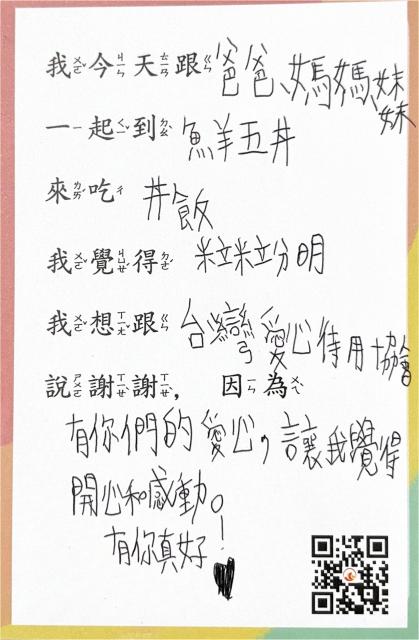 我ㄨㄛˇ今ㄐㄧㄣ天ㄊㄧㄢ跟ㄍㄣ爸爸、媽媽、妹妹
一ㄧ起ㄑㄧˇ到ㄉㄠˋ鮮五丼
來ㄌㄞˊ吃ㄔ丼飯
我ㄨㄛˇ覺ㄐㄩㄝˊ得ㄉㄜ˙粒粒分明
我ㄨㄛˇ想ㄒㄧㄤˇ跟ㄍㄣ台灣愛心待用協會
說ㄕㄨㄛ謝ㄒㄧㄝˋ謝ㄒㄧㄝ˙,因ㄧㄣ為ㄨㄟˋ
有你們的愛心,讓我覺得
開心和感動。
有你真好!